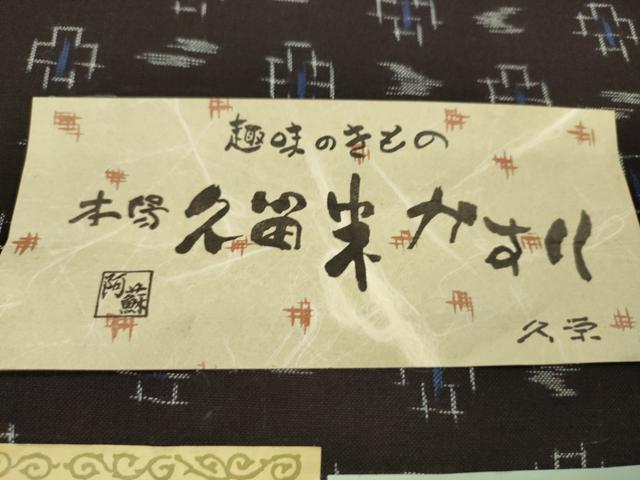 趣味のきもの
本場 久留米かすり
阿蘇
久栄